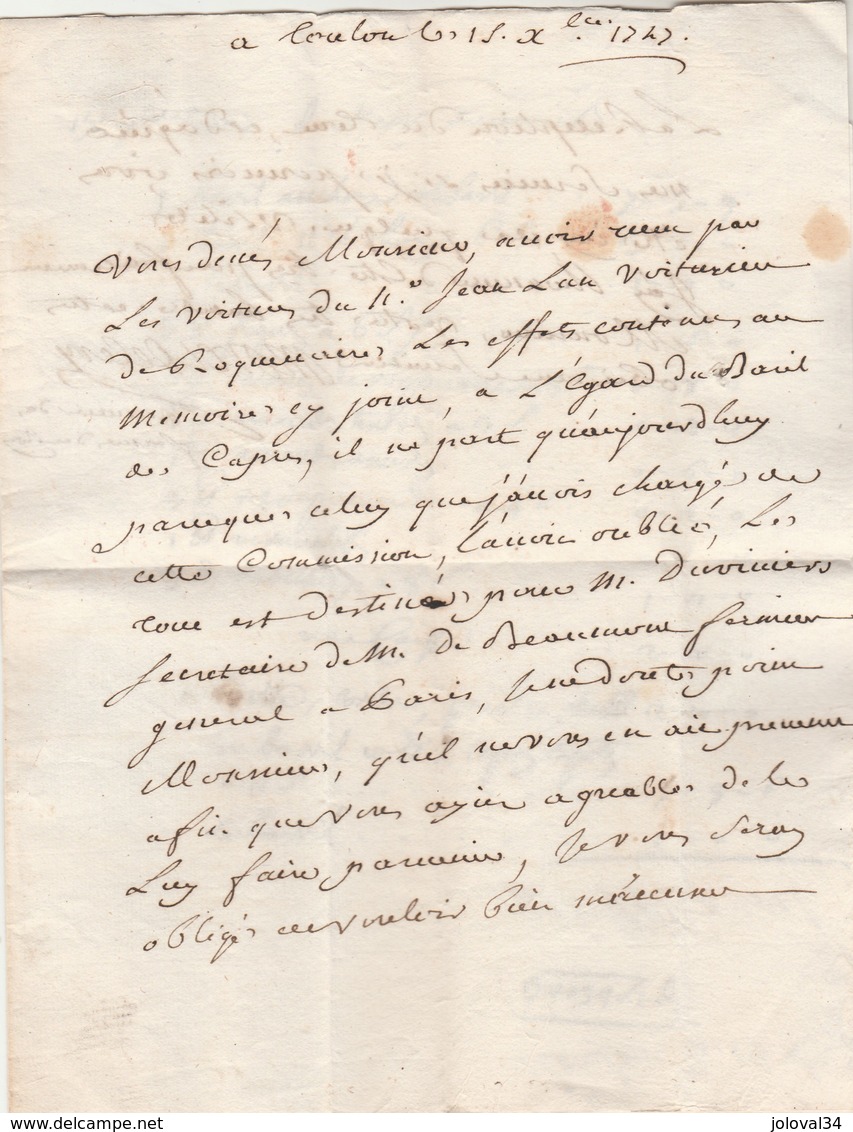 a Toulon le 15. Xbre. 1747.
Vous devés Monsieur, avoir reçu par
Les voitures du Nº Jean Lan Voiturier
de Roquevaire Les effets contenus au
Memoire cy joint, a L'Egard du Baril
de Capres, il ne part qu'aujourdhuy
parceque celuy que j'avois chargé de
cette Commission, l'avoit oublié, Le
tout est destiné pour M. Duviviers
secretaire de M. de Beaumont fermier
general a Paris, Je ne doute point
Monsieur, qu'il ne vous en ait prevenu
afin que vous ayiez agreable de le
Luy faire parvenir, Je vous seray
obligé de vouloir bien m'accuser
www.delcampe.net
joloval34